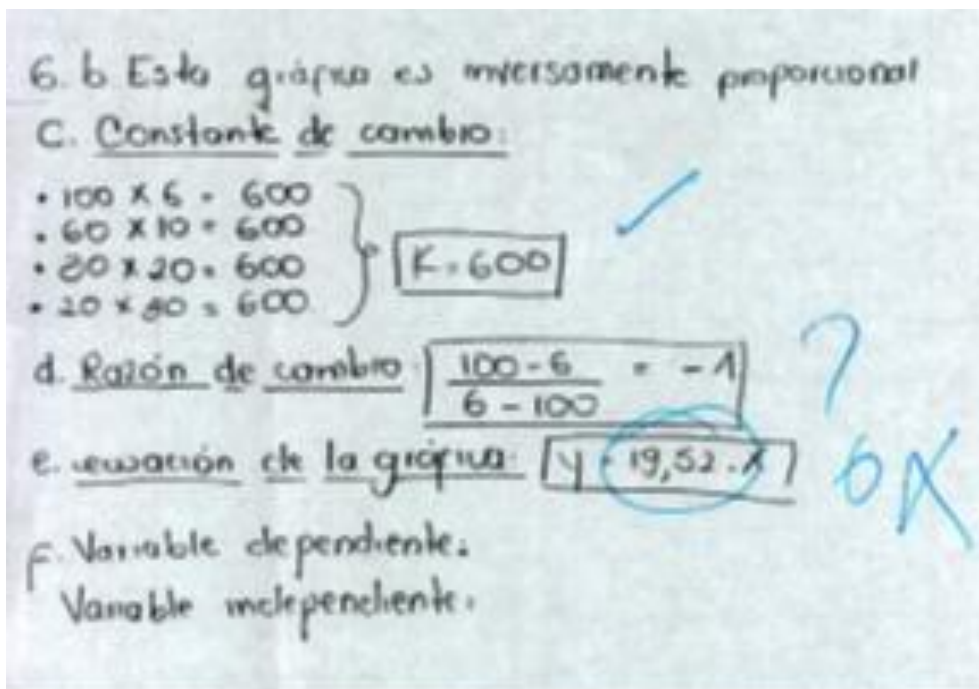 6. b Esta gráfica es inversamente proporcional
C. Constante de cambio:
• 100 x 6 = 600
• 60 x 10 = 600
• 30 x 20 = 600
• 20 x 30 = 600
K = 600
d. Razón de cambio: 100 - 6 / 6 - 100 = -1
?
e. ecuación de la gráfica: y = 19,52 . x
F. Variable dependiente:
Variable independiente: